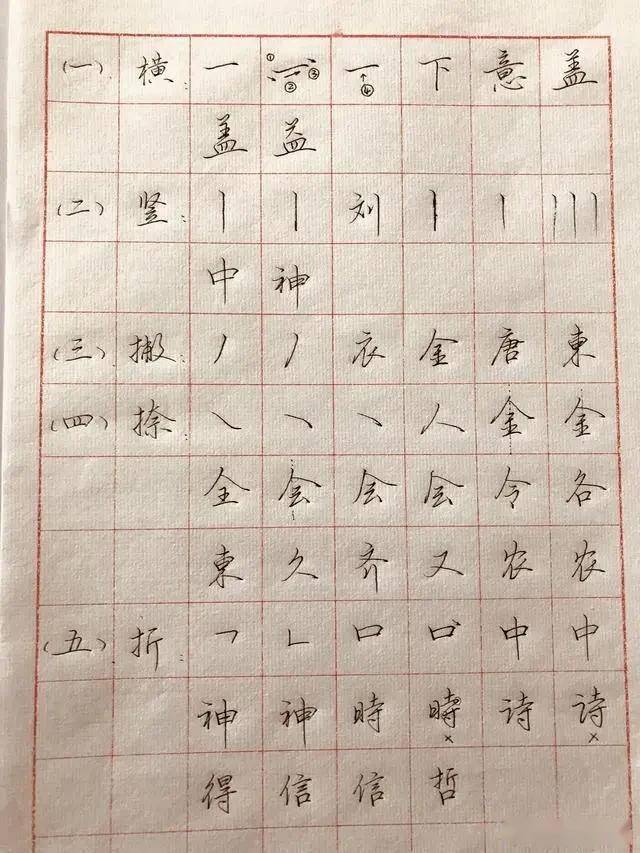 (一) 横: 一 ① 一 ② ③ 一 ↑ ④ 下 意 盖
盖 益
(二) 竖: 丨 丨 刘 丨 丨 丨丨丨
中 神
(三) 撇: 丿 丿 衣 金 唐 東
(四) 捺: ㇏ ㇏ ㇏ 人 金 金
全 会 会 会 令 各
東 久 齐 又 农 农
(五) 折: ㇕ ㇗ 口 口 中 中
神 神 時 時× 诗 诗×
得 信 信 哲